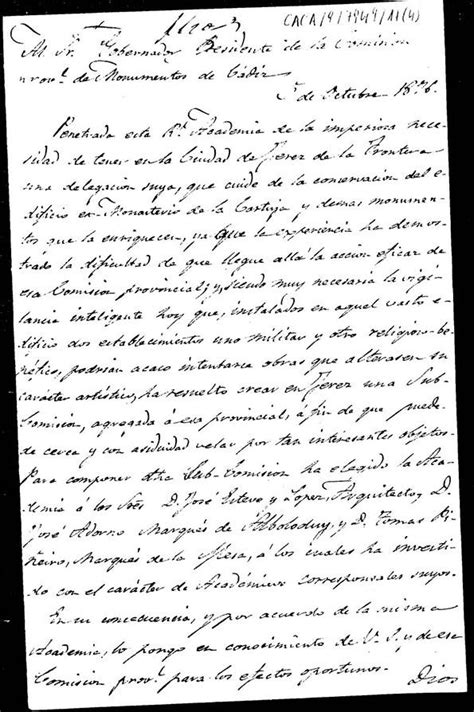 CACA/9/7949/11(4)
Al Sr. Gobernador Presidente de la Comision
provl. de Monumentos de Cádiz
de Octubre 1876.
Penetrada esta Rl. Academia de la imperiosa nece-
sidad de tener en la Ciudad de Jerez de la Fronte-ra
una delegacion suya, que cuide de la conservacion del e-
dificio ex-Monasterio de la Cartuja y demas monumen-
tos que la enriquecen, ya que la experiencia ha demos-
trado la dificultad de que llegue allá la accion eficaz de
esa Comision provincial; y siendo muy necesaria la vigi-
lancia inteligente hoy que, instalados en aquel vasto e-
dificio dos establecimientos uno militar y otro religioso-be-
néfico, podrian acaso intentarse obras que alterasen su
carácter artístico, ha resuelto crear en Jerez una Sub-
Comision, agregada á esa provincial, á fin de que pueda
de cerca y con asiduidad velar por tan interesantes objetos.
Para componer dha Sub-Comision ha elegido la Aca-
demia á los Sres D. José Esteve y Lopez, Arquitecto, D.
José Adorno Marqués de Alboloduy, y D. Tomas Pi-
ñeiro, Marqués de la Mesa, á los cuales ha investi-
do con el carácter de Académicos corresponsales suyos.
En su consecuencia, y por acuerdo de la misma
Academia, lo pongo en conocimiento de V. S. y de esa
Comision provl. para los efectos oportunos.
Dios